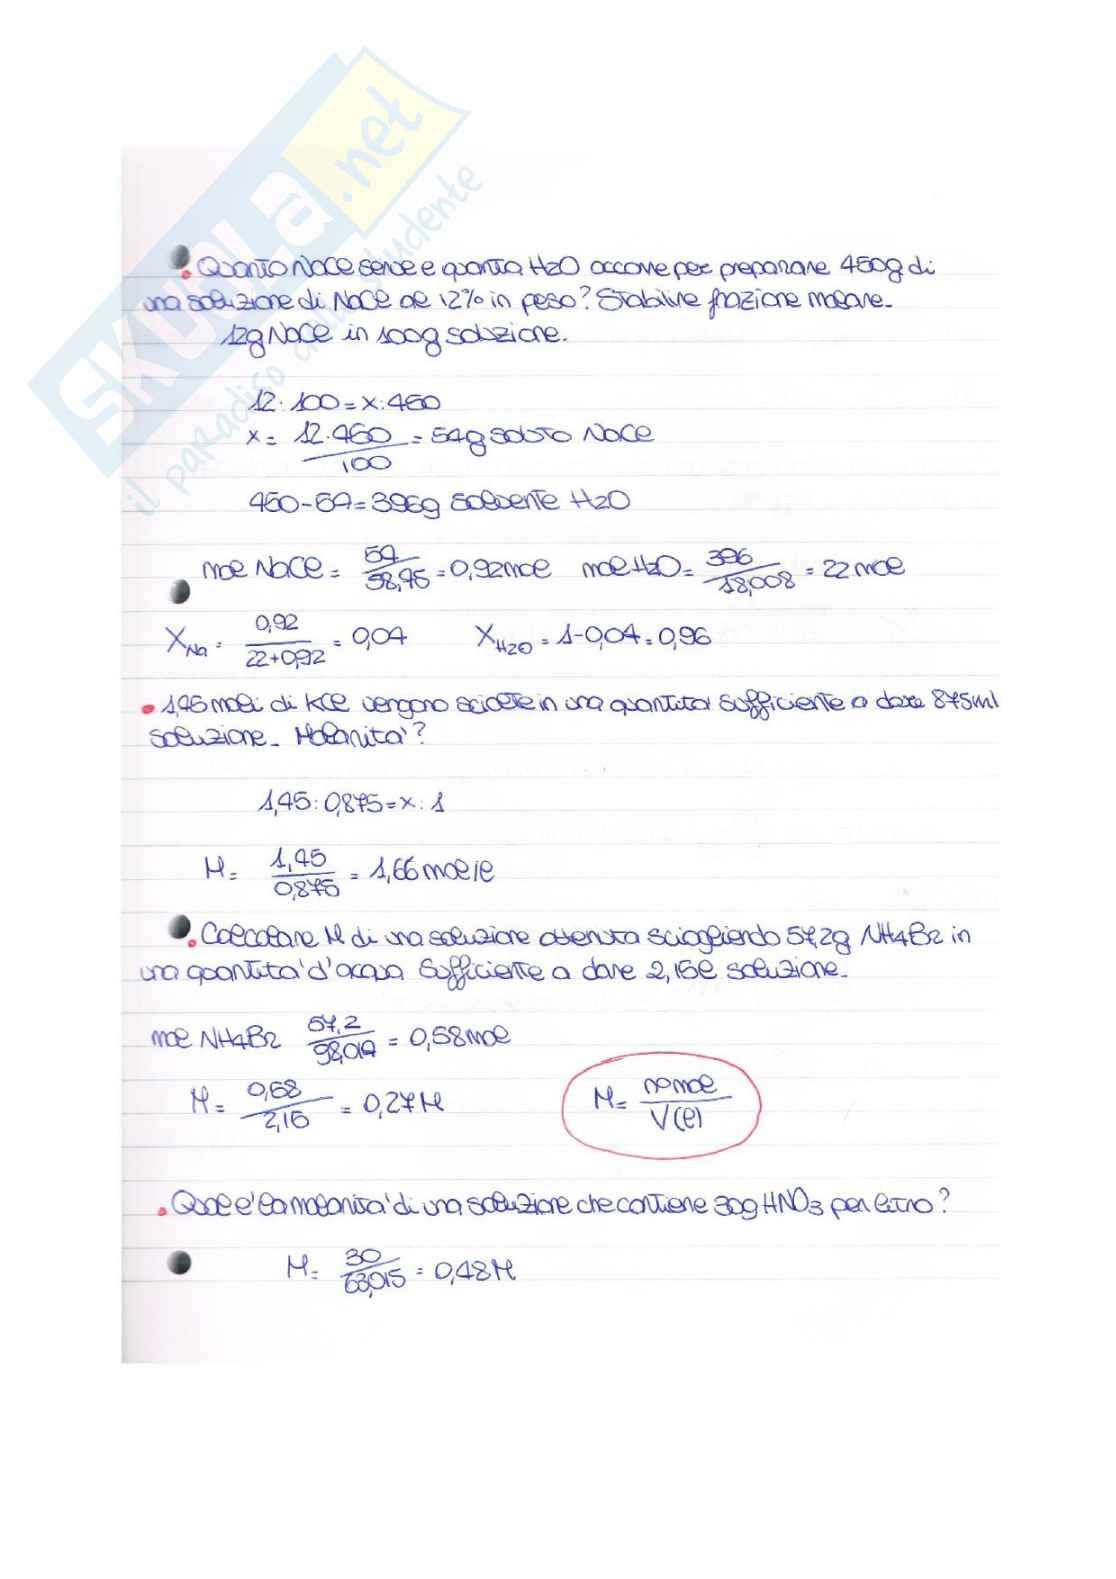 SKUOLA.net
il paradiso dello studente
Quanto NaCl serve e quanta H2O occorre per preparare 450g di
una soluzione di NaCl al 12% in peso? Stabilire frazione molare.
12g NaCl in 100g soluzione.
12 : 100 = x : 450
x = 12·450 / 100 = 54g soluto NaCl
450-54=396g solvente H2O
mol NaCl = 54 / 58,45 = 0,92mol mol H2O = 396 / 18,008 = 22 mol
XNa = 0,92 / 22+0,92 = 0,04 XH2O = 1-0,04=0,96
1,45 moli di KCl vengono sciolte in una quantità sufficiente a dare 875ml
soluzione. Molarità?
1,45 : 0,875 = x : 1
M = 1,45 / 0,875 = 1,66 mol/l
Calcolare M di una soluzione ottenuta sciogliendo 57,2g NH4Br in
una quantità d'acqua sufficiente a dare 2,15l soluzione.
mol NH4Br 57,2 / 98,019 = 0,58mol
M = 0,58 / 2,15 = 0,27M M = n°mol / V(l)
Qual e' la molarita' di una soluzione che contiene 30g HNO3 per litro?
M = 30 / 63,015 = 0,48M